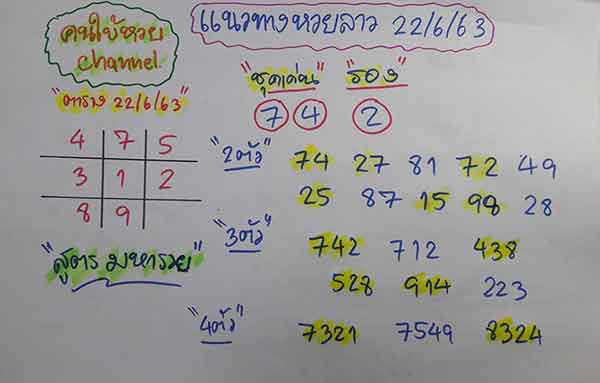 คนใบ้หวย
channel
แนวทางหวยลาว 22/6/63
"ตาราง 22/6/63"
4 7 5
3 1 2
8 9
"สูตร มหารวย"
"ชุดเด่น" "รอง"
7 4 2
"2ตัว" 74 27 81 72 49
25 87 15 98 28
"3ตัว" 742 712 438
528 914 223
"4ตัว" 7321 7549 8324